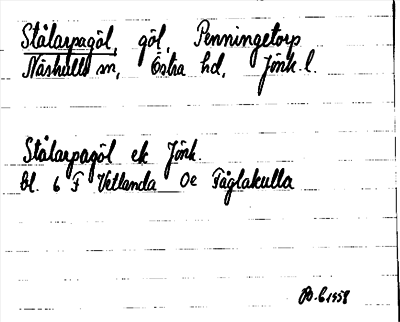 Stålarpagöl, göl, Penningetorp
Näshults sn, Östra hd, Jönk l.
Stålarpagöl ek Jönk.
bl. 6 F Vetlanda 0e Fåglakulla
1958